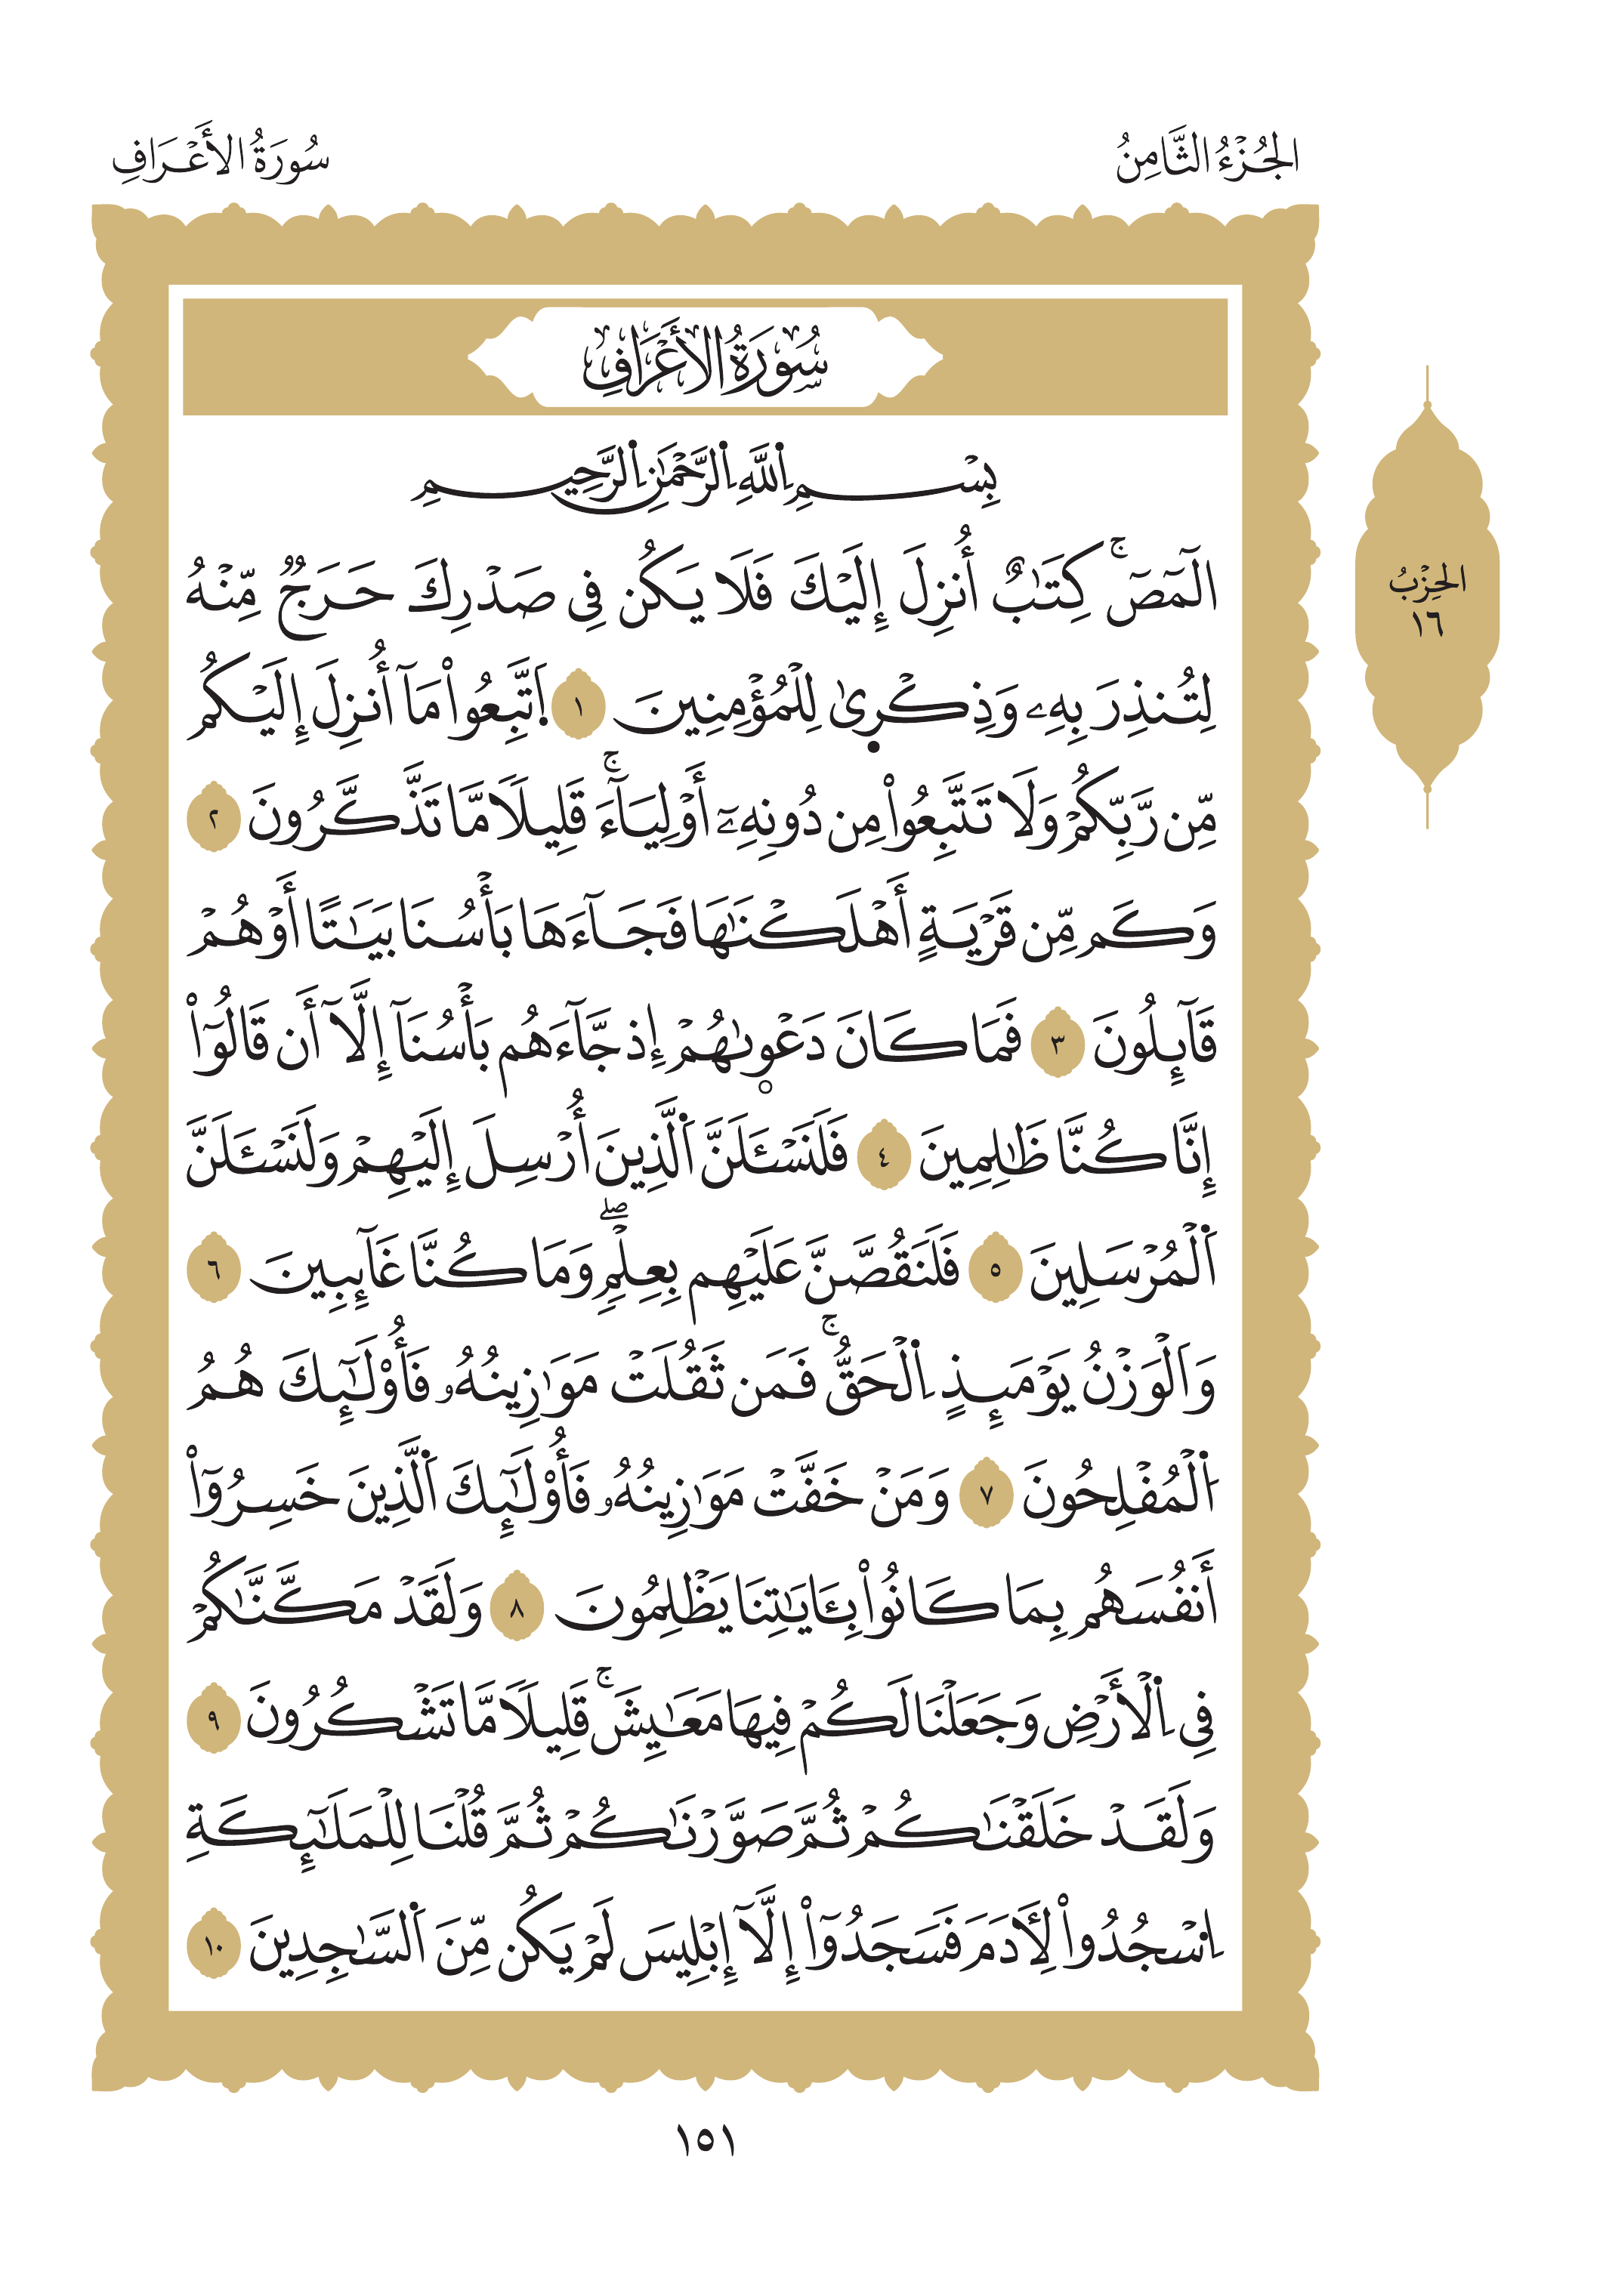 الجُزْءُ الثَّامِنُ
سُورَةُ الأَعْرَافِ
الحِزْبُ
١٦
سُورَةُ الأَعْرَافِ
بِسْمِ اِ۬للَّهِ اِ۬لرَّحْمَٰنِ اِ۬لرَّحِيمِ
الٓمٓصٓۚ كِتَٰبٌ أُنزِلَ إِلَيْكَ فَلَا يَكُن فِى صَدْرِكَ حَرَجٞ مِّنْهُ
لِتُنذِرَ بِهِۦ وَذِكْر۪ىٰ لِلْمُؤْمِنِينَ ١ اَ۪تَّبِعُواْ مَآ أُنزِلَ إِلَيْكُم
مِّن رَّبِّكُمْ وَلَا تَتَّبِعُواْ مِن دُونِهِۦٓ أَوْلِيَآءَۚ قَلِيلٗا مَّا تَذَّكَّرُونَ ٢
وَكَم مِّن قَرْيَةٍ أَهْلَكْنَٰهَا فَجَآءَهَا بَأْسُنَا بَيَٰتًا أَوْ هُمْ
قَآئِلُونَ ٣ فَمَا كَانَ دَعْو۪ىٰهُمْ إِذ جَّآءَهُم بَأْسُنَآ إِلَّآ أَن قَالُوٓاْ
إِنَّا كُنَّا ظَٰلِمِينَ ٤ فَلَنَسْـَٔلَنَّ اَ۬لَّذِينَ أُرْسِلَ إِلَيْهِمْ وَلَنَسْـَٔلَنَّ
اَ۬لْمُرْسَلِينَ ٥ فَلَنَقُصَّنَّ عَلَيْهِم بِعِلْمٖۖ وَمَا كُنَّا غَآئِبِينَ ٦
وَاَ۬لْوَزْنُ يَوْمَئِذٍ اِ۬لْحَقُّۚ فَمَن ثَقُلَتْ مَوَٰزِينُهُۥ فَأُوْلَٰٓئِكَ هُمُ
اُ۬لْمُفْلِحُونَ ٧ وَمَنْ خَفَّتْ مَوَٰزِينُهُۥ فَأُوْلَٰٓئِكَ اَ۬لَّذِينَ خَسِرُوٓاْ
أَنفُسَهُم بِمَا كَانُواْ بِـَٔايَٰتِنَا يَظْلِمُونَ ٨ وَلَقَدْ مَكَّنَّٰكُمْ
فِى اِ۬لْأَرْضِ وَجَعَلْنَا لَكُمْ فِيهَا مَعَٰيِشَۚ قَلِيلٗا مَّا تَشْكُرُونَ ٩
وَلَقَدْ خَلَقْنَٰكُمْ ثُمَّ صَوَّرْنَٰكُمْ ثُمَّ قُلْنَا لِلْمَلَٰٓئِكَةِ
اِ۟سْجُدُواْ لِأٓدَمَ فَسَجَدُوٓاْ إِلَّآ إِبْلِيسَ لَمْ يَكُن مِّنَ اَ۬لسَّٰجِدِينَ ١٠
١٥١